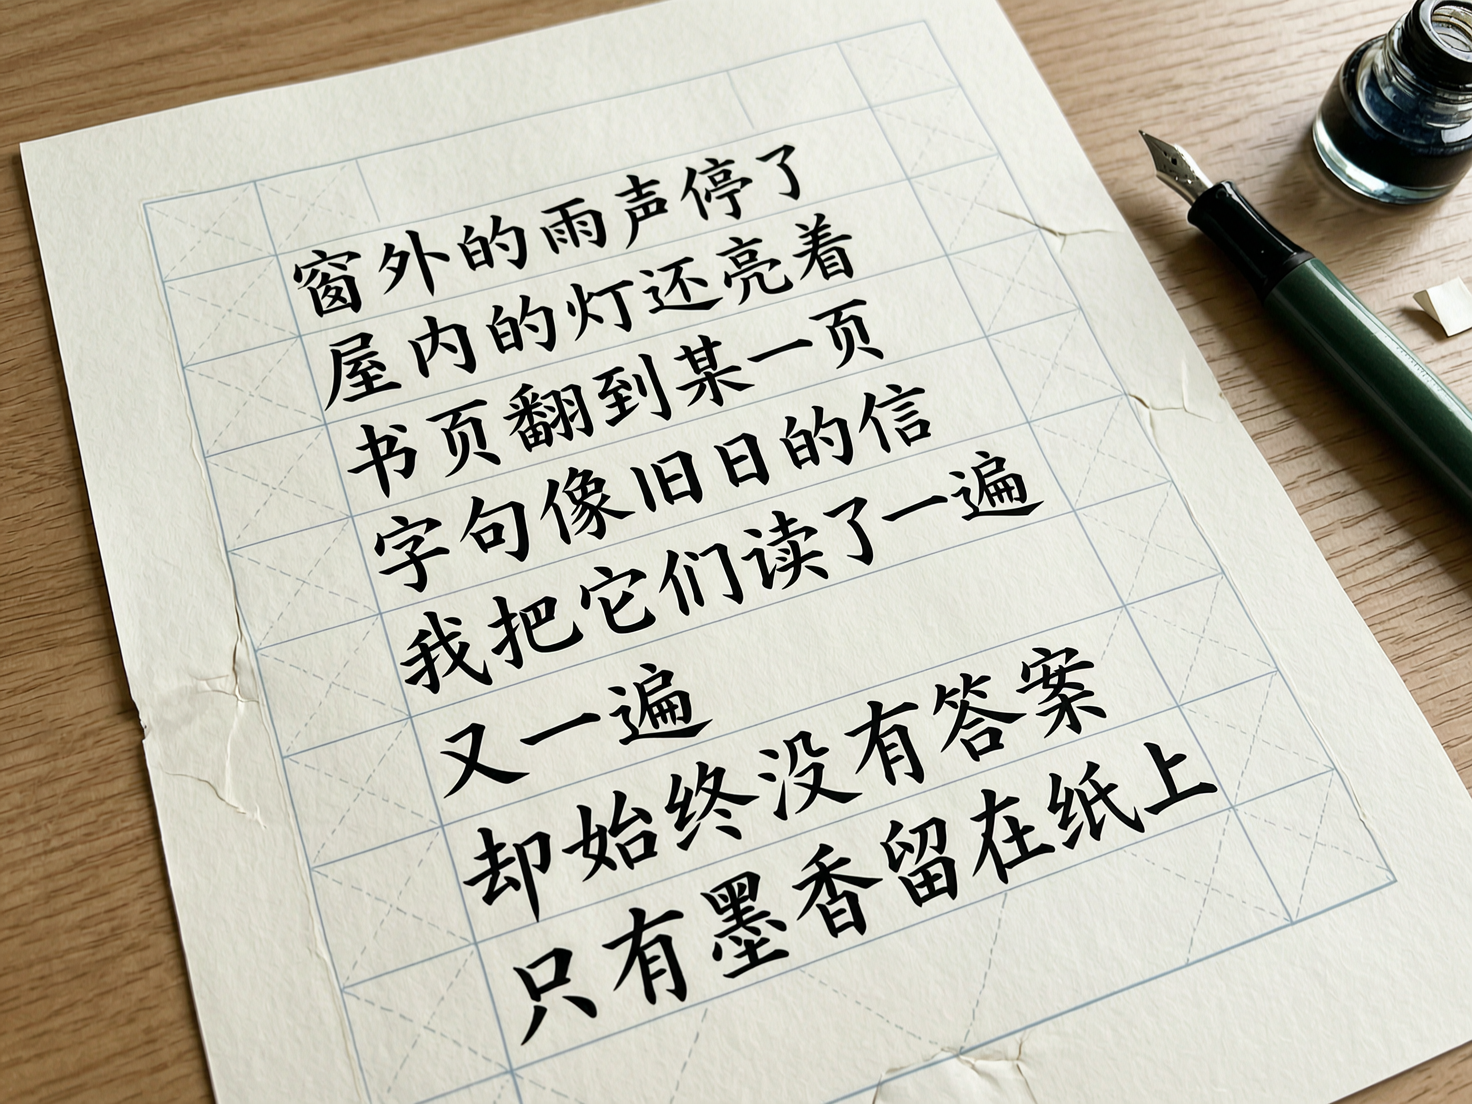 窗外的雨声停了
屋内的灯还亮着
书页翻到某一页
字句像旧日的信
我把它们读了一遍
又一遍
却始终没有答案
只有墨香留在纸上